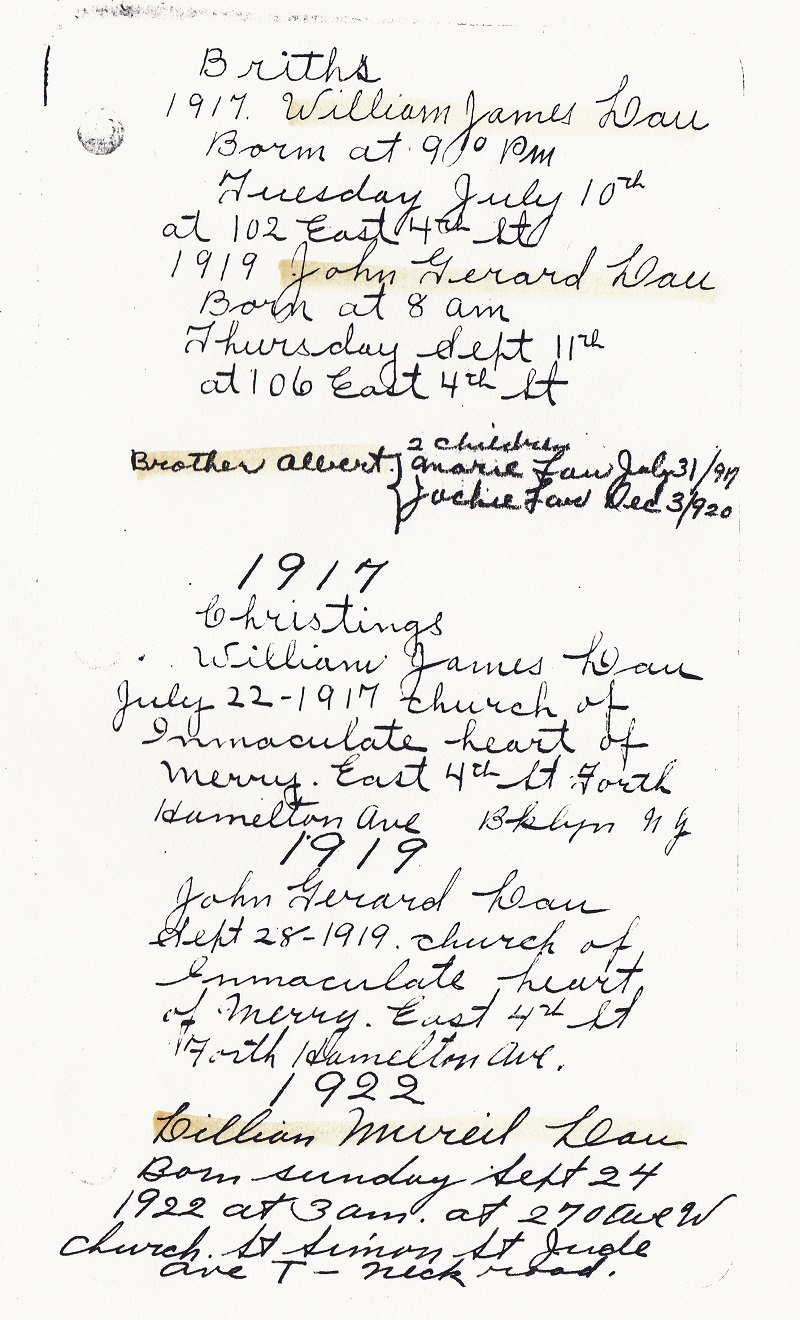 Briths
1917. William James Lau
Born at 9 PM
Tuesday July 10th
at 102 East 4th St
1919 John Gerard Lau
Born at 8 am
Thursday Sept 11th
at 106 East 4th St
2 children
Brother Albert. Marie Lau July 31/917
Jackie Lau Dec 3/920
1917
Christings
William James Lau
July 22-1917 church of
Inmaculate heart of
Merry. East 4th St Forth
Hamelton Ave Bklyn N Y
1919
John Gerard Lau
Sept 28-1919. church of
Inmaculate heart
of Merry. East 4th St
Forth Hamelton Ave.
1922
Lillian Mureil Lau
Born sunday Sept 24
1922 at 3 am. at 270 Ave W
church. St Simon St Jude
Ave T - neck road.